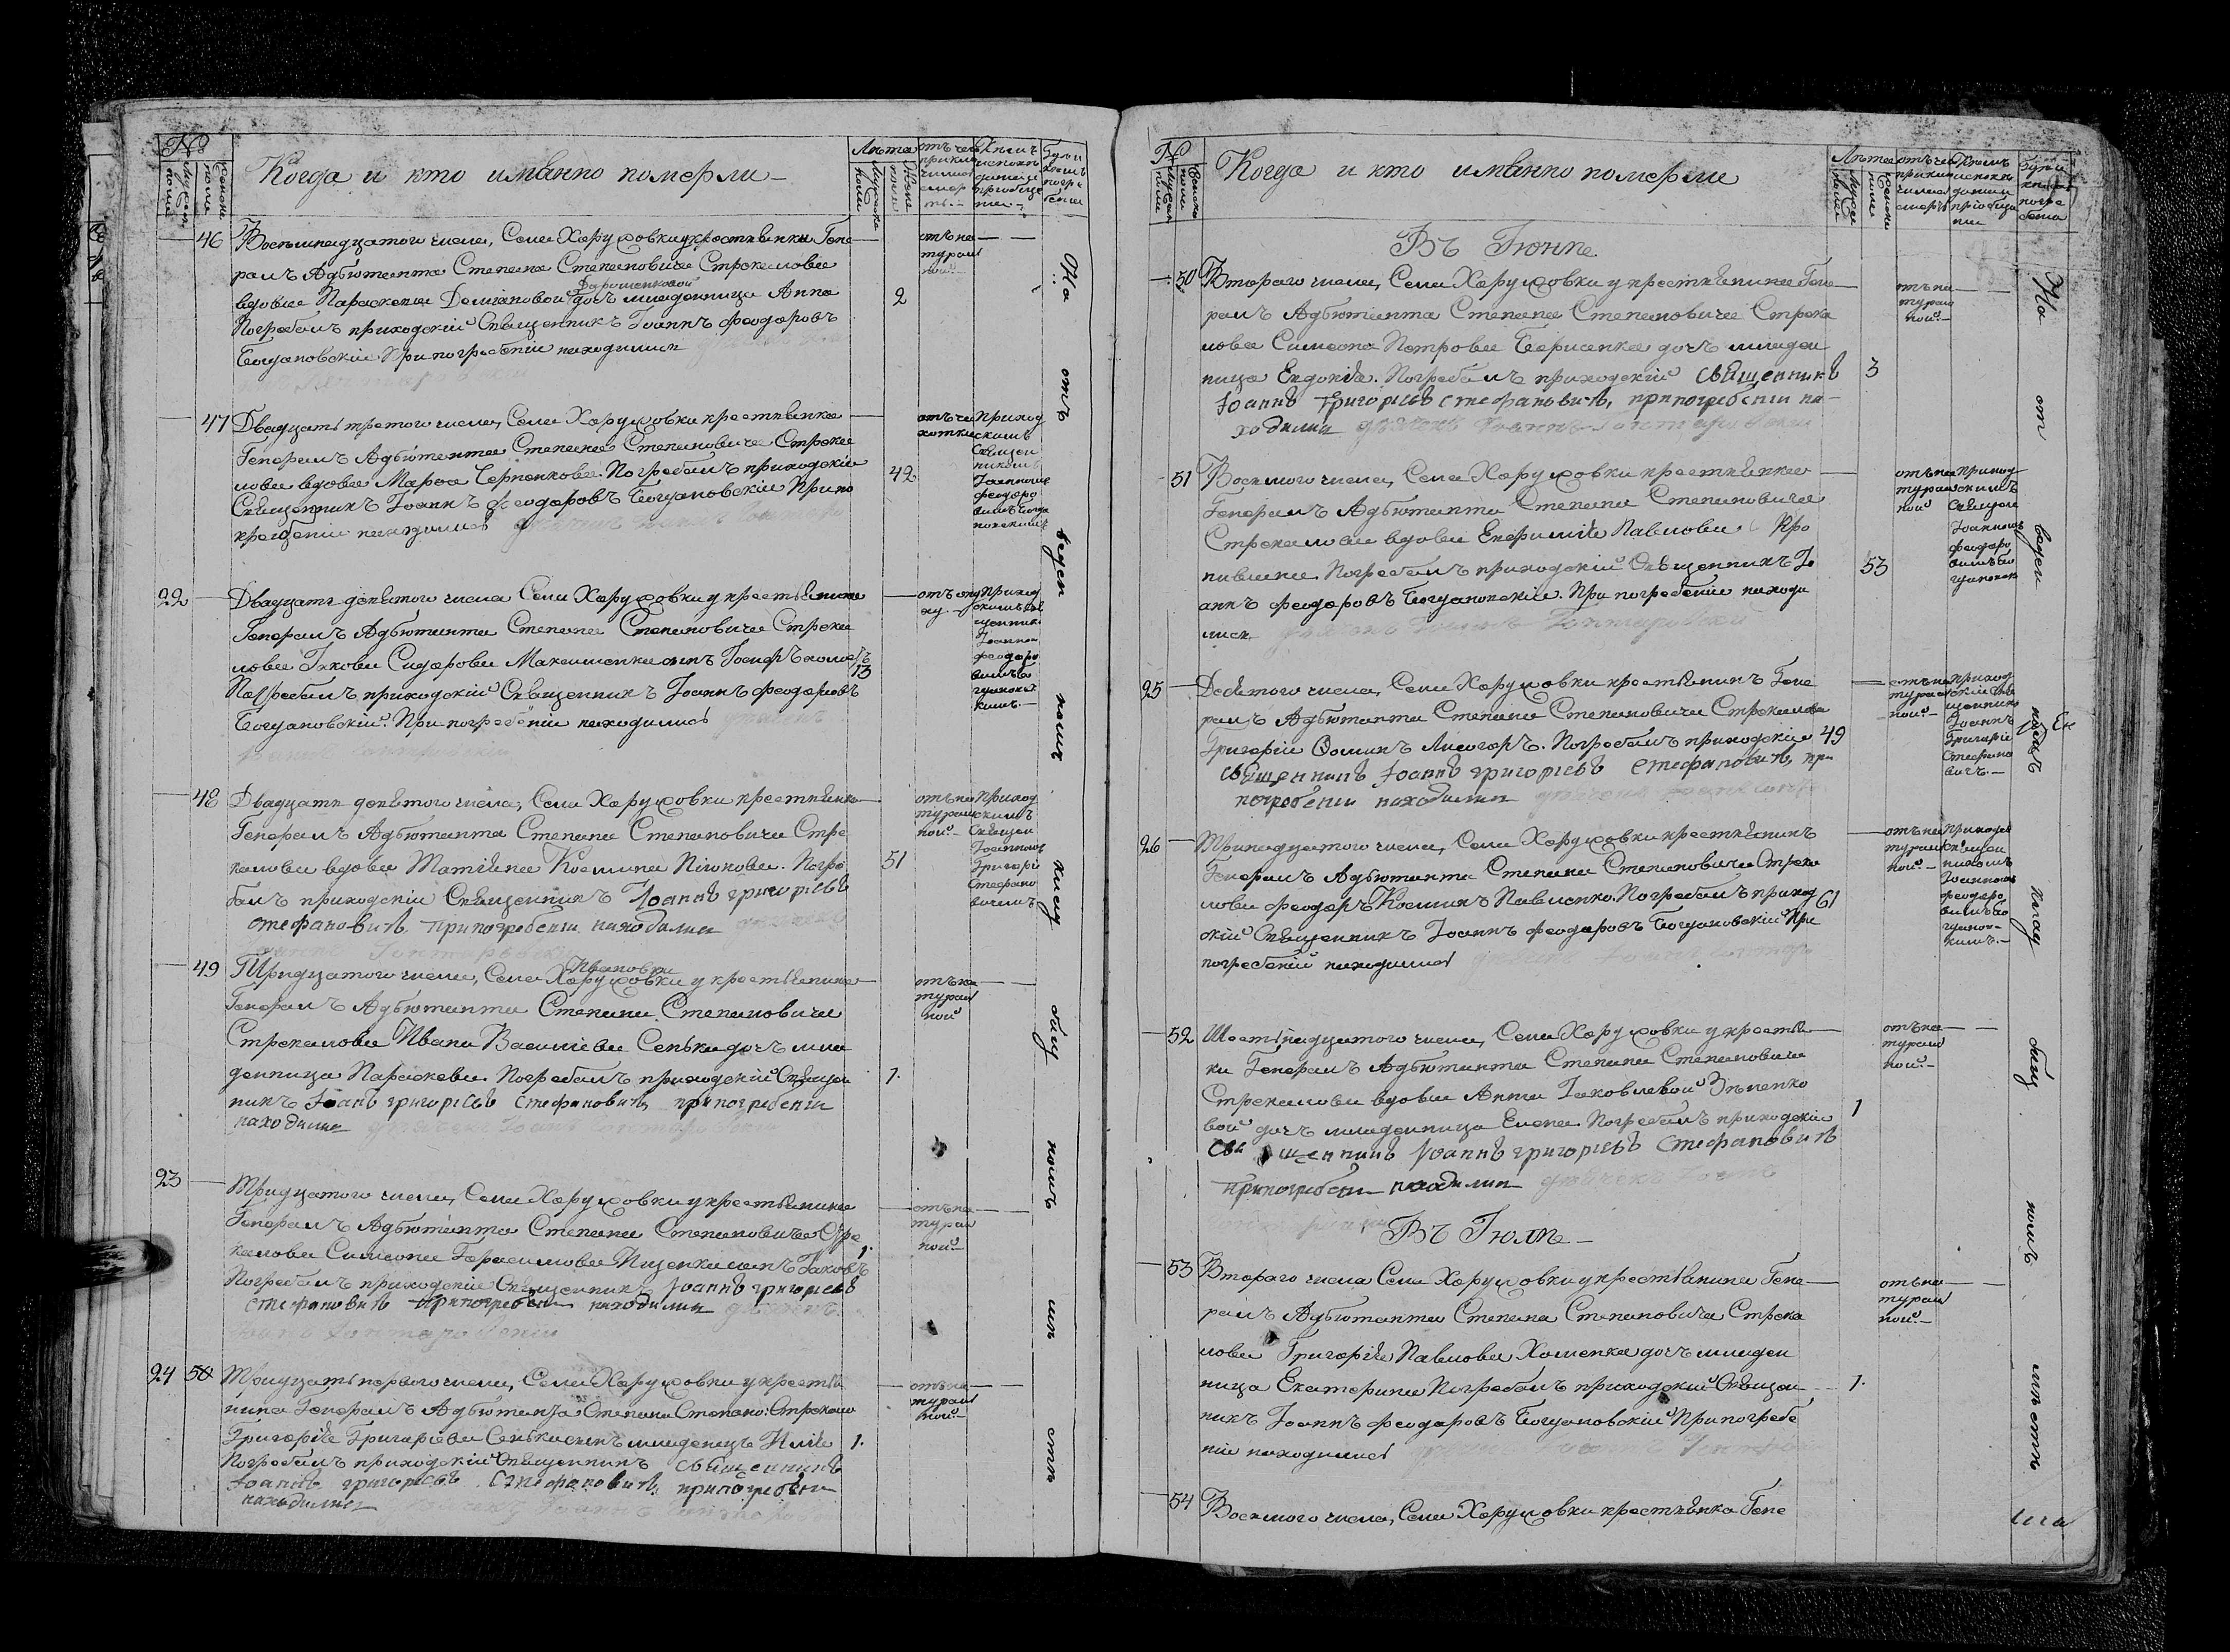 №
мужеск: полы
женска полы
Когда и кто именно померли
Лѣта
мужеска полы
женска полы
отъ чего приключилась смерть
Кѣмъ исповѣданы и пріобщены
Гдѣ и кѣмъ погребены
46
Восемнадцатого числа, Села Харуховки у крестьянки Гене
ралъ Адъютанта Степана Степановича Стрекалова
вдовы Параскевы Даміановой Дарошенковой дочь младенница Анна
Погребалъ приходскій Священникъ Іоаннъ Феодоровъ
Богдановскій При погребеніи находились
2
отъ на
турал
ной
47
Двадцать третого числа, Села Харуховки крестьянка
Генералъ Адъютанта Степана Степановича Стрека
лова вдова Марфа Черненкова. Погребалъ приходскій
Священникъ Іоаннъ Феодоровъ Богдановскій При по
гребеніи находились
42
отъ ча
хотки
Приход
скимъ
Священ
никомъ
Іоанномъ
Феодоро
вимъ Богда
новскимъ
22
Двадцать девятого числа Села Харуховки у крестьянина
Генералъ Адъютанта Степана Степановича Стрека
лова Іякова Сидорова Максименка синъ Іосифъ
Погребалъ приходскій Священникъ Іоаннъ Феодоровъ
Богдановскій. При погребеніи находились
13
Приход
скимъ Свя
щенник
Іоанном
Феодоро
вимъ Бо
гдановс
кимъ
48
Двадцать девятого числа, Села Харуховки крестьянка
Генералъ Адъютанта Степана Степановича Стре
калова вдова Татіяна Косьмина Погре
балъ приходскій Священникъ Іоаннъ григоріевъ
стефановичъ при погребеніи находились
51
отъ на
турал
ной
Приход
скимъ
Священ
Іоанномъ
Григоріе
Стефано
вичемъ
49
Тридцатого числа, Села Харуховки Ивановки у крестьянина
Генералъ Адъютанта Степана Степановича
Стрекалова Ивана Василіева Сенька дочь мла
денница Параскева. Погребалъ приходскій Священ
никъ Іоанъ григоріевъ стефановичъ при погребеніи
находились
1.
отъ на
турал
ной
23
Тридцатого числа, Села Харуховки у крестьянина
Генералъ Адъютанта Степана Степановича Стре
калова Симеона Герасимова синъ Іаковъ
Погребалъ приходскій Священникъ Іоаннъ григоріевъ
стефановичъ при погребеніи находились
1.
отъ на
турал
ной
24
50
Тридцать первого числа, Села Харуховки у крестья
нина Генералъ Адъютанта Степана Степано: Стрекало
Григорія Григоріева Сенька синъ младенецъ Илія
Погребалъ приходскій Священникъ священникъ
Іоаннъ григоріевъ Стефановичъ при погребеніи
находились
1.
отъ на
турал
ной
На отъ веден номъ клад бищ номъ мѣ стѣ
№
мужеск полы
женска полы
Когда и кто именно померли
Лѣта
мужеска полы
женска полы
отъ чего приключилась смерть
Кѣмъ исповѣданы и пріобщены
Гдѣ и кѣмъ погребены
Въ Іюнѣ
50
Второго числа, Села Харуховки у крестьянина Гене
ралъ Адъютанта Степана Степановича Стрека
лова Симеона Петрова Борисенка дочь младен
ница Евдокія. Погребалъ приходскій священникъ
Іоаннъ григоріевъ стефановичъ, при погребеніи на
ходились
3
отъ на
турал
ной
51
Восмого числа, Села Харуховки крестьянка
Генералъ Адъютанта Степана Степановича
Стрекалова вдова Павлова Кро
пивянка Погребалъ приходскій Священникъ Іо
аннъ Феодоровъ Богдановскій. При погребеніи находи
лись
53
отъ на
турал
ной
Приход
скимъ
Священ
Іоанномъ
Феодоро
вимъ Бо
гдановск
25
Десятого числа, Села Харуховки крестьянинъ Гене
ралъ Адъютанта Степана Степановича Стрекалова
Григорій Фоминъ Лисогоръ. Погребалъ приходскій
священникъ Іоаннъ григоріевъ стефановичъ, при
погребеніи находились
49
отъ на
турал
ной
Приход
скій Свя
щенник
Іоаннъ
Григоріе
Стефано
вичъ.
26
Тринадцатого числа, Села Харуховки крестьянинъ
Генералъ Адъютанта Степана Степановича Стрека
лова Феодоръ Косминъ Павленко. Погребалъ приход
скій Священникъ Іоаннъ Феодоровъ Богдановскій При
погребеній находились
61
отъ на
турал
ной
Приход
Священ
никомъ
Іоанномъ
Феодоро
вимъ Бо
гданов
кимъ.
52
Шестнадцатого числа, Села Харуховки у крестья
ки Генералъ Адъютанта Степана Степановича
Стрекалова вдовы Анны Іаковлевой
вой дочь младенница Елена Погребалъ приходскій
священникъ Іоаннъ григоріевъ Стефановичъ
при погребеніи находились
1
отъ на
турал
ной
Въ Іюлѣ
53
Второго числа Села Харуховки у крестьянина Гене
ралъ Адъютанта Степана Степановича Стрека
лова Григорія Павлова Хоменка дочь младен
ница Екатерина Погребалъ приходскій Священ
никъ Іоаннъ Феодоровъ Богдановскій При погребе
ніи находились
1.
отъ на
турал
ной
54
Восмого числа, Села Харуховки крестьянка Гене
На от веден номъ клад бищ номъ мѣстѣ